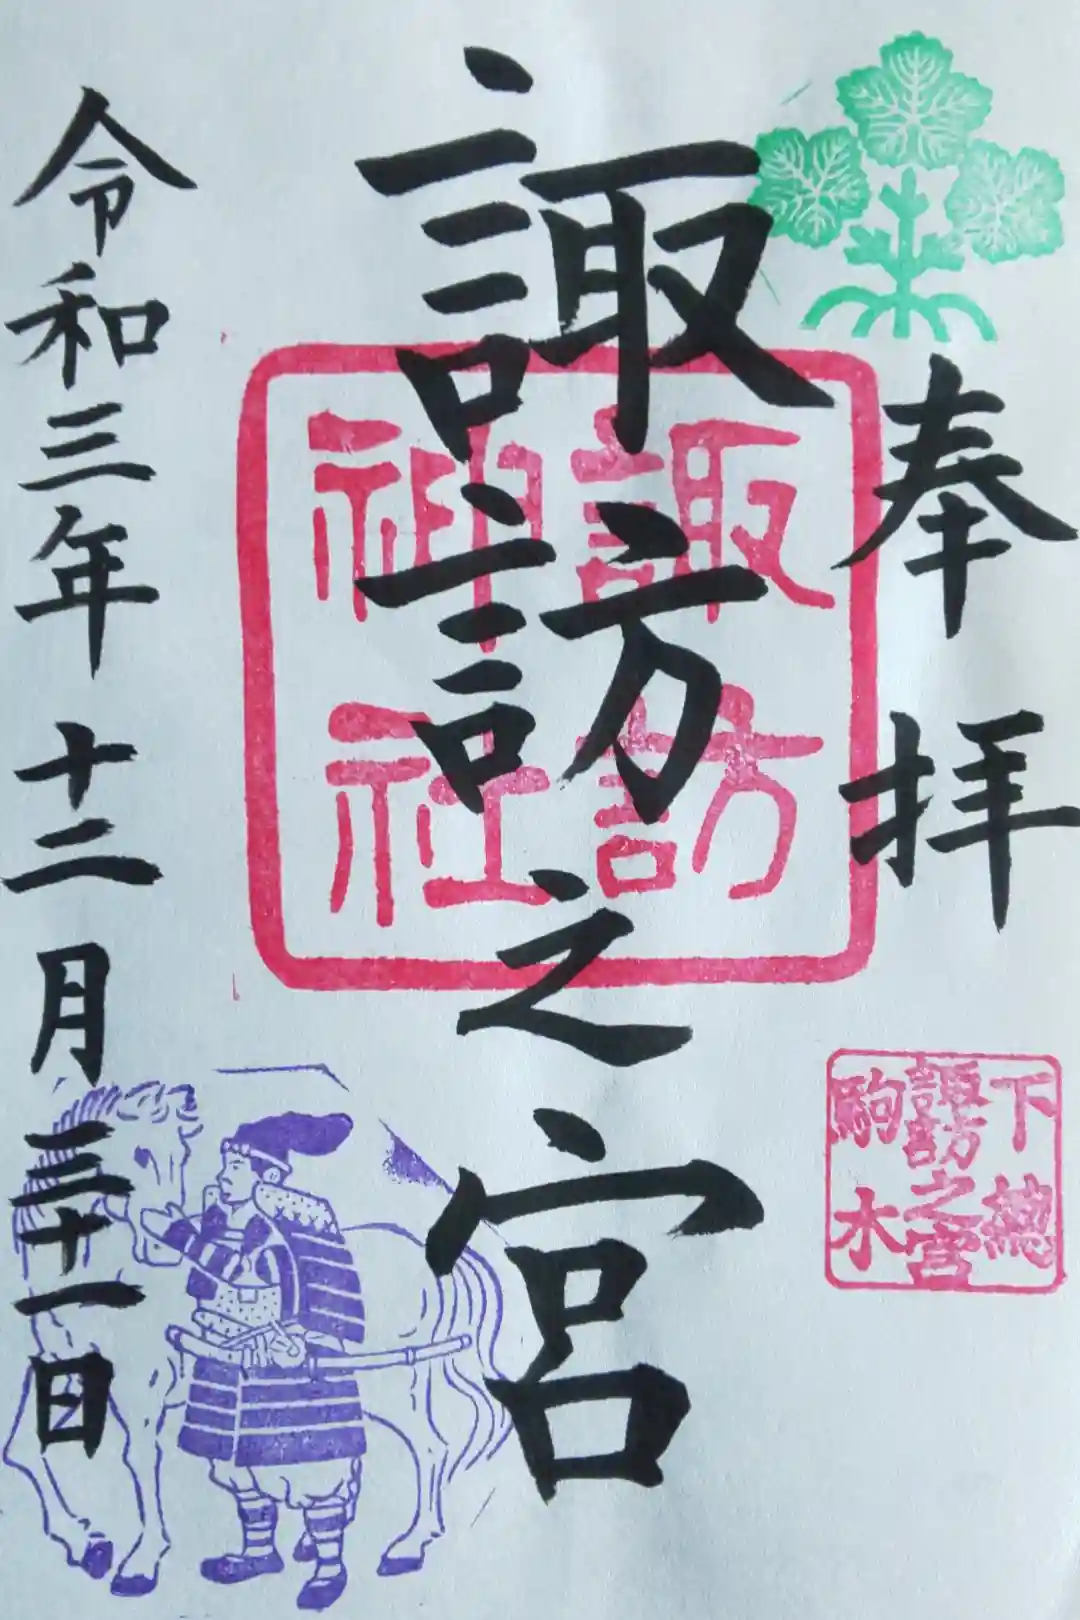 奉拝
諏訪之宮
諏訪
神社
下総
諏訪之宮
駒木
令和三年十二月三十一日